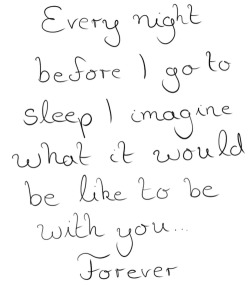 Every night
before I go to
sleep I imagine
what it would
be like to be
with you...
Forever